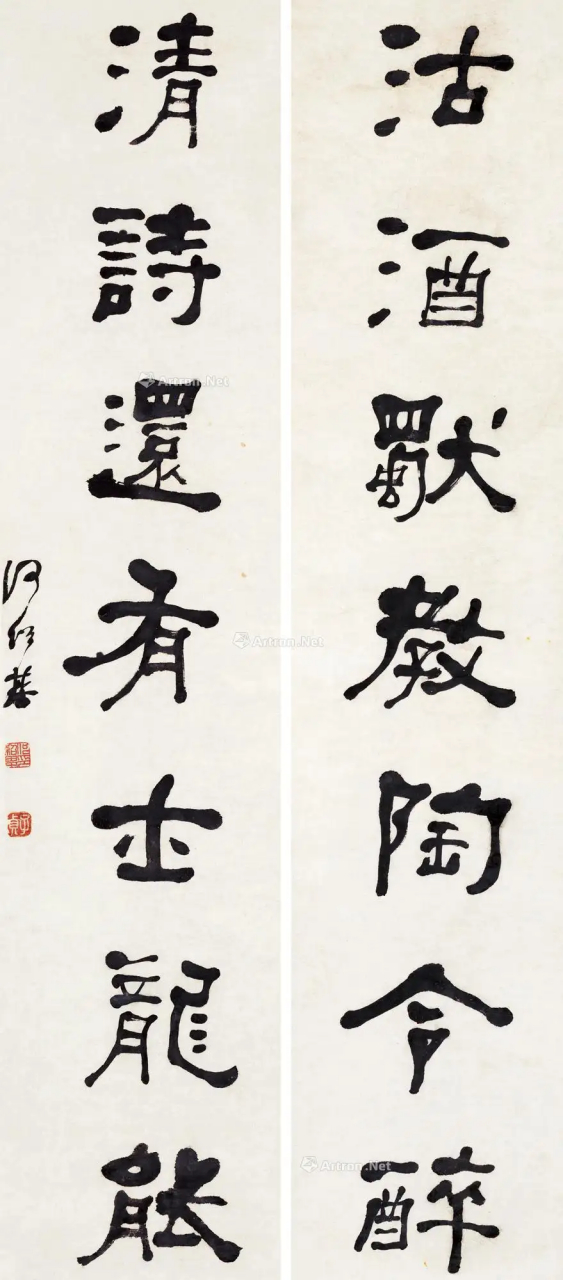 沽酒獨教陶令醉
清詩還有士龍能
何紹基
子貞
Artron.Net
Artron.Net
Artron.Net